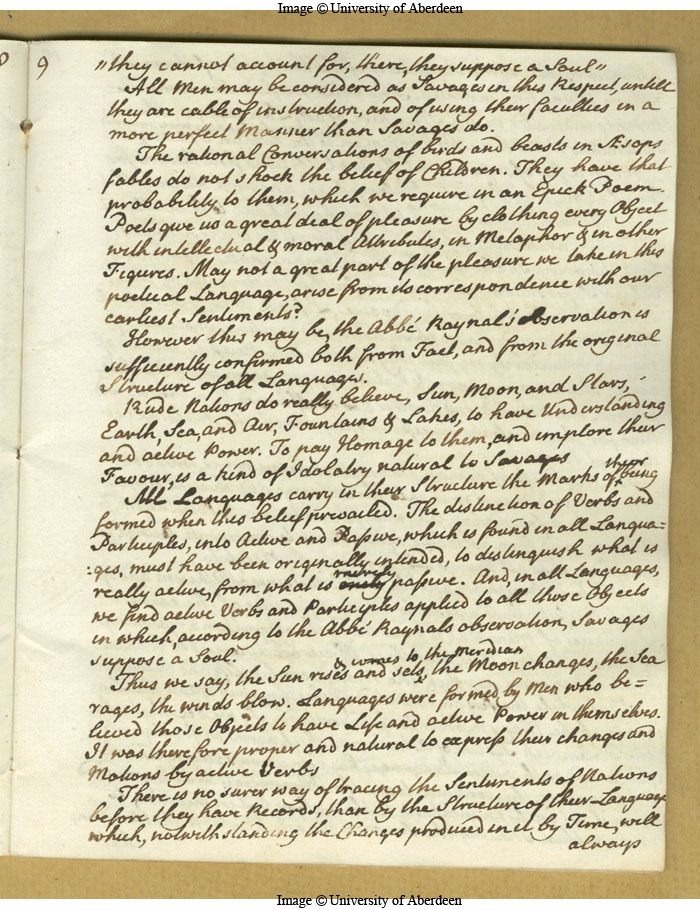 Image © University of Aberdeen
9
"they cannot account for, there, they suppose a Soul"
All Men may be considered as Savages in this Respect, untill
they are cable of instruction, and of using their faculties in a
more perfect Manner than Savages do.
The rational Conversations of birds and beasts in Æsops
fables do not shock the belief of Children. They have that
probability to them, which we require in an Epick Poem.
Poets give us a great deal of pleasure by clothing every Object
with intellectual & moral Attributes, in Metaphor & in other
Figures. May not a great part of the pleasure we take in this
poetical Language, arise from its correspondence with our
earliest Sentiments?
However this may be, the Abbé Raynal's observation is
sufficiently confirmed both from Fact, and from the original
Structure of all Languages.
Rude Nations do really believe, Sun, Moon, and Stars,
Earth, Sea, and Air, Fountains & Lakes, to have Understanding
and active Power. To pay Homage to them, and implore their
Favour, is a kind of Idolatry natural to Savages
All Languages carry in their Structure the Marks of their being
formed when this belief prevailed. The distinction of Verbs and
Participles, into Active and Passive, which is found in all Langua=
:ges, must have been originally intended, to distinguish what is
really active, from what is only merely passive. And, in all Languages,
we find active Verbs and Participles applied to all those Objects
in which, according to the Abbé Raynals observation, Savages
suppose a Soul.
Thus we say, the Sun rises and sets & comes to the Meridian, the Moon changes, the Sea
rages, the winds blow. Languages were formed by Men who be=
lieved those Objects to have Life and active Power in themselves.
It was therefore proper and natural to express their changes and
Motions by active Verbs
There is no surer way of tracing the Sentiments of Nations
before they have Records, than by the Structure of their Language
which, notwithstanding the Changes produced in it by Time, will
always
Image © University of Aberdeen